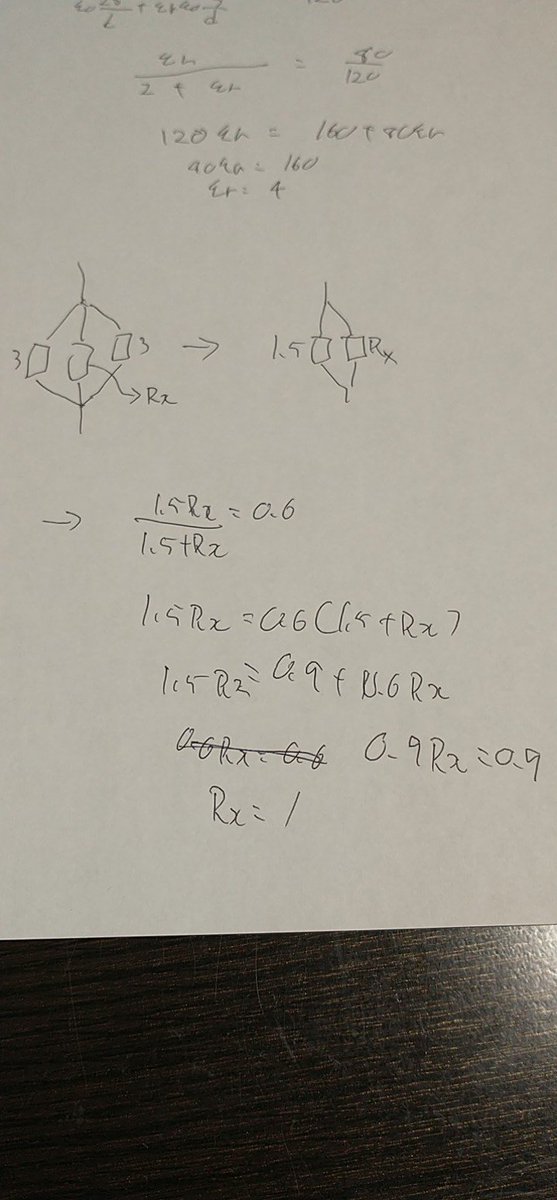 εr / 2 + εr = 80 / 120
120εr = 160 + 80εr
40εr = 160
εr = 4
3 3 Rx → 1.5 Rx
→ 1.5Rx / 1.5+Rx = 0.6
1.5Rx = 0.6(1.5+Rx)
1.5Rx = 0.9 + 0.6Rx
0.6Rx = 0.6 0.9Rx = 0.9
Rx = 1